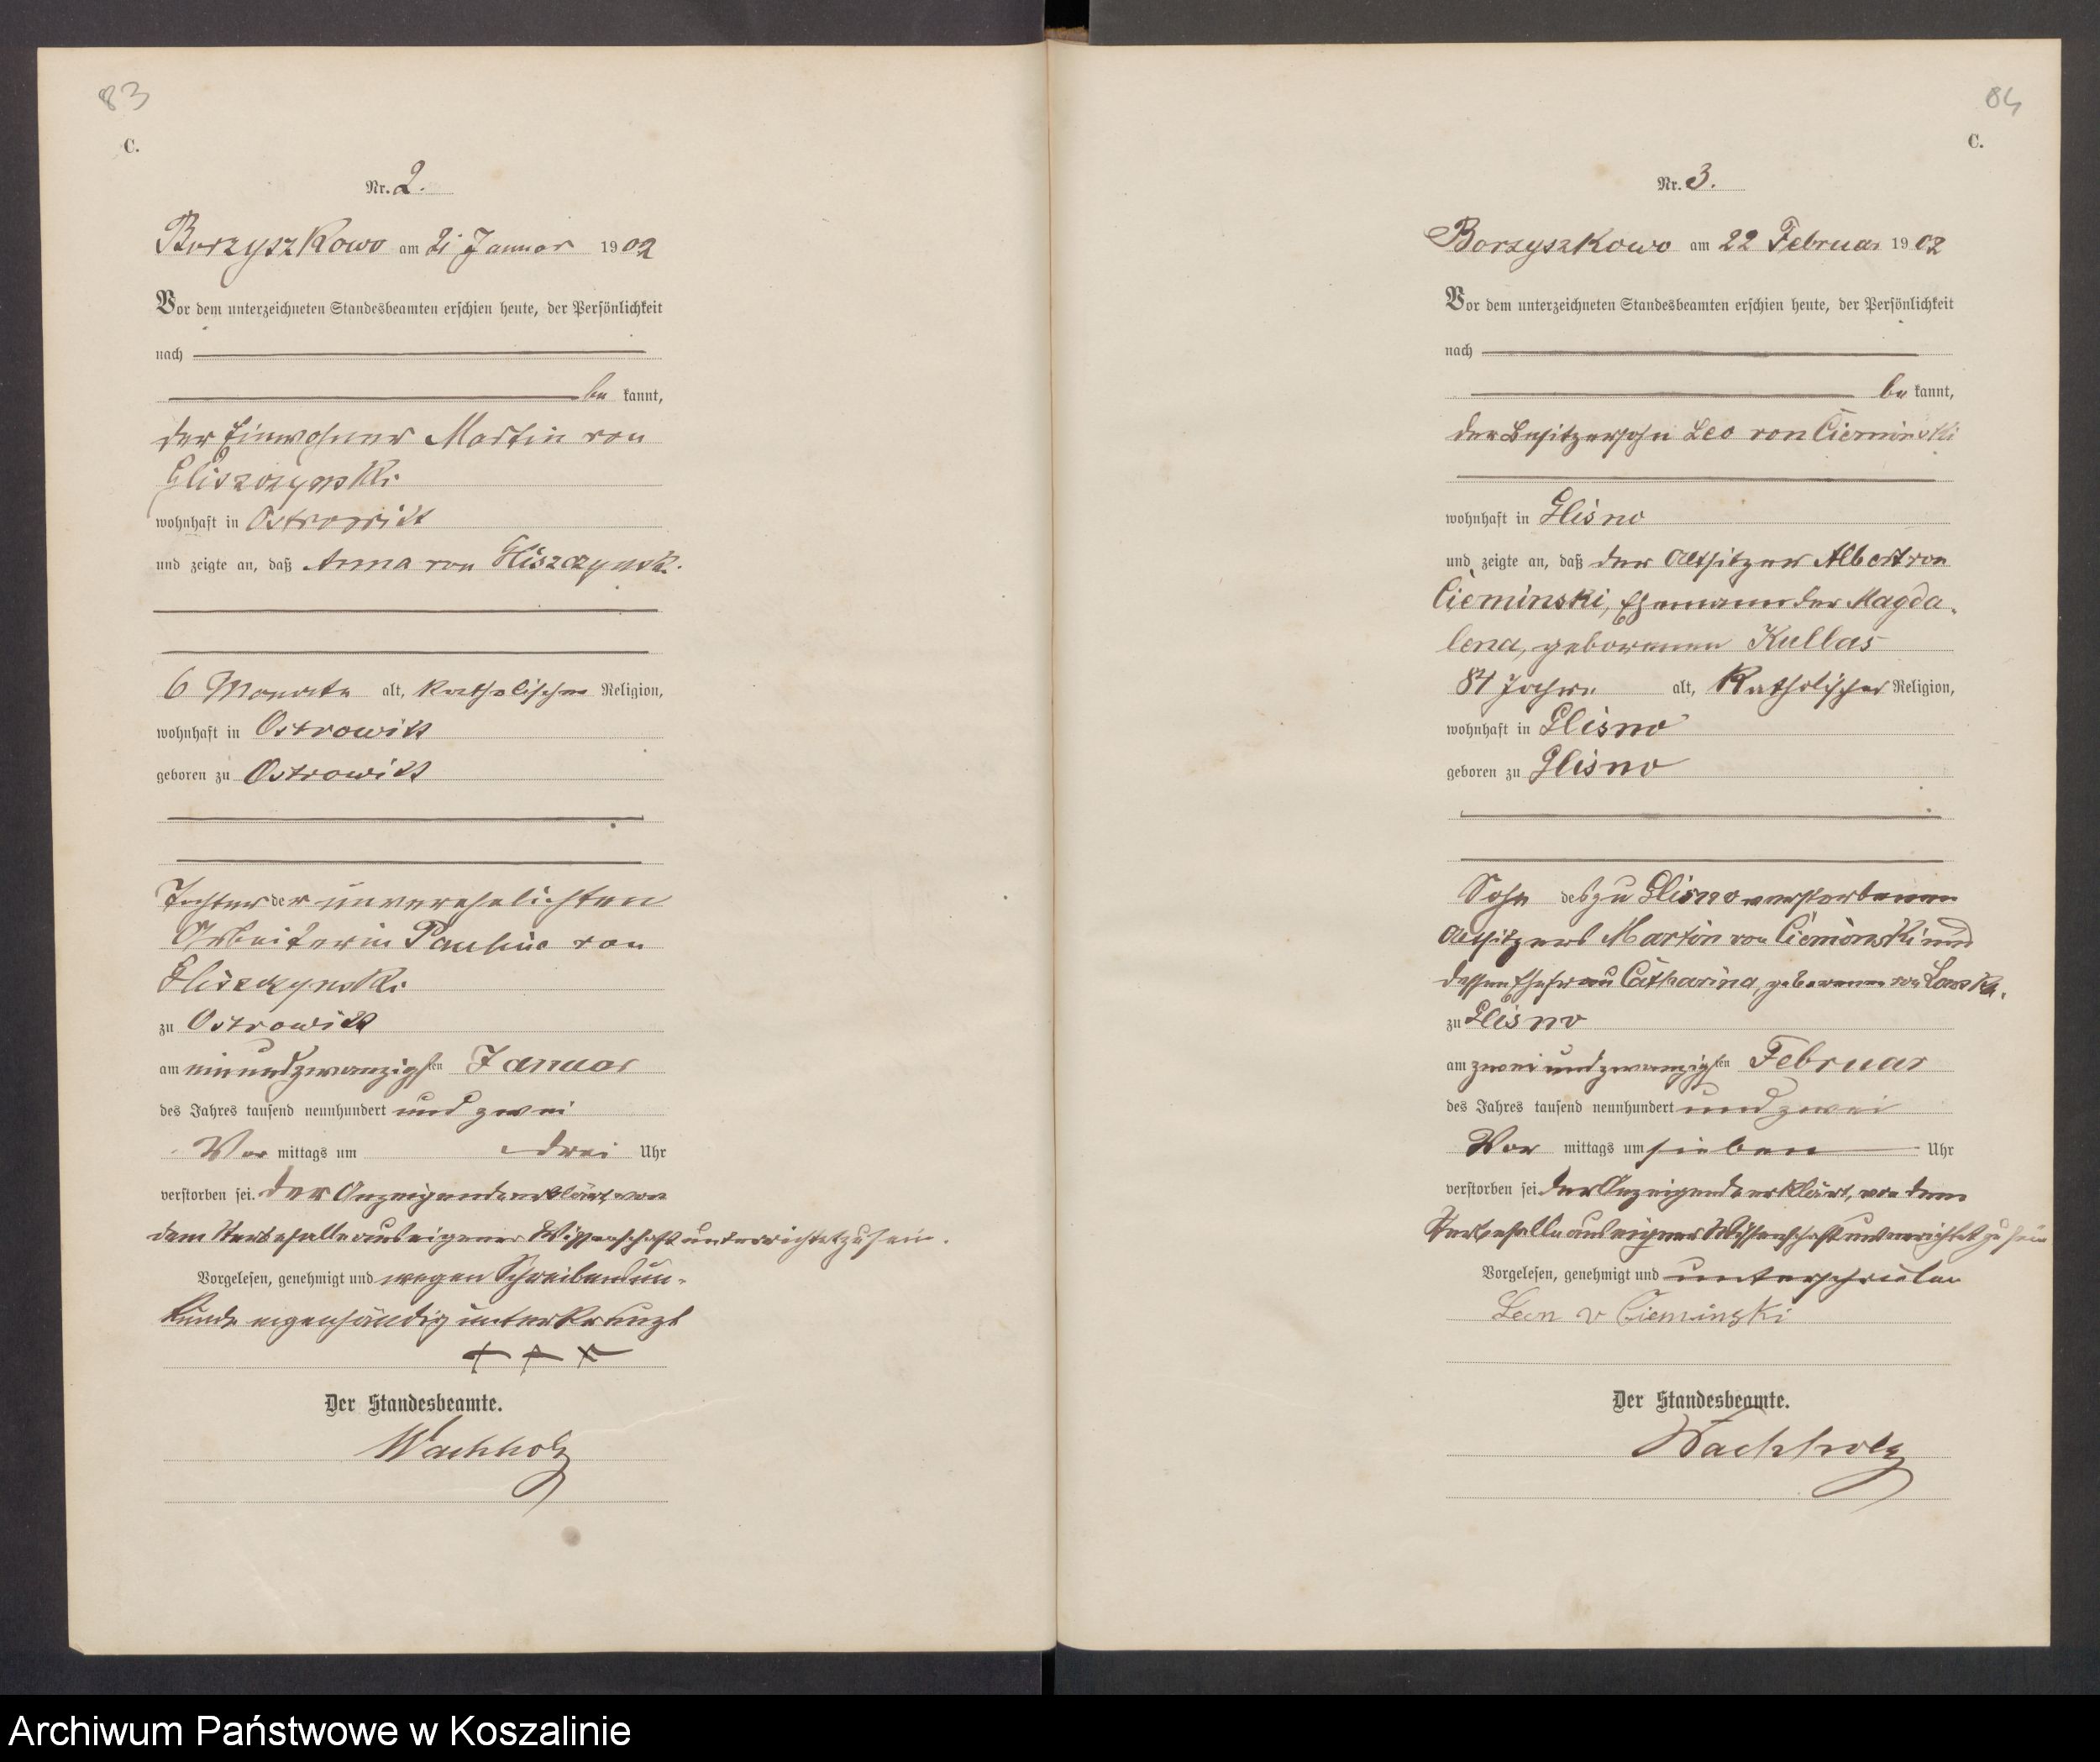 83
C.
Nr. 2.
Borzyszkowo am 21 Januar 1902
Vor dem unterzeichneten Standesbeamten erschien heute, der Persönlichkeit
nach
be kannt,
der Einwohner Martin von
Gliszczynski
wohnhaft in Ostrowitt
und zeigte an, daß Anna von Gliszczynski
6 Monate alt, katholischer Religion,
wohnhaft in Ostrowitt
geboren zu Ostrowitt
Tochter der unverehelichten
Arbeiterin Pauline von
Gliszczynski
zu Ostrowitt
am einundzwanzigsten Januar
des Jahres tausend neunhundert und zwei
Vor mittags um drei Uhr
verstorben sei. Der Anzeigende erklärt, von
dem Sterbefalle aus eigener Wissenschaft unterrichtet zu sein.
Vorgelesen, genehmigt und wegen Schreibensun-
kunde eigenhändig unterkreuzt
+ + +
Der Standesbeamte.
Wachholz
84
C.
Nr. 3.
Borzyszkowo am 22 Februar 1902
Vor dem unterzeichneten Standesbeamten erschien heute, der Persönlichkeit
nach
be kannt,
der Besitzersohn Leo von Cieminski
wohnhaft in Glisno
und zeigte an, daß der Altsitzer Albert von
Cieminski, Ehemann der Magda-
lena, geborenen Kullas
84 Jahre alt, katholischer Religion,
wohnhaft in Glisno
geboren zu Glisno
Sohn des zu Glisno verstorbenen
Altsitzers Martin von Cieminski und
dessen Ehefrau Catharina, geborenen von
zu Glisno
am zwei und zwanzigsten Februar
des Jahres tausend neunhundert und zwei
Vor mittags um sieben Uhr
verstorben sei. Der Anzeigende erklärt, von dem
Sterbefalle aus eigner Wissenschaft unterrichtet zu sein
Vorgelesen, genehmigt und unterschrieben
Leon v Cieminski
Der Standesbeamte.
Wachholz
Archiwum Państwowe w Koszalinie